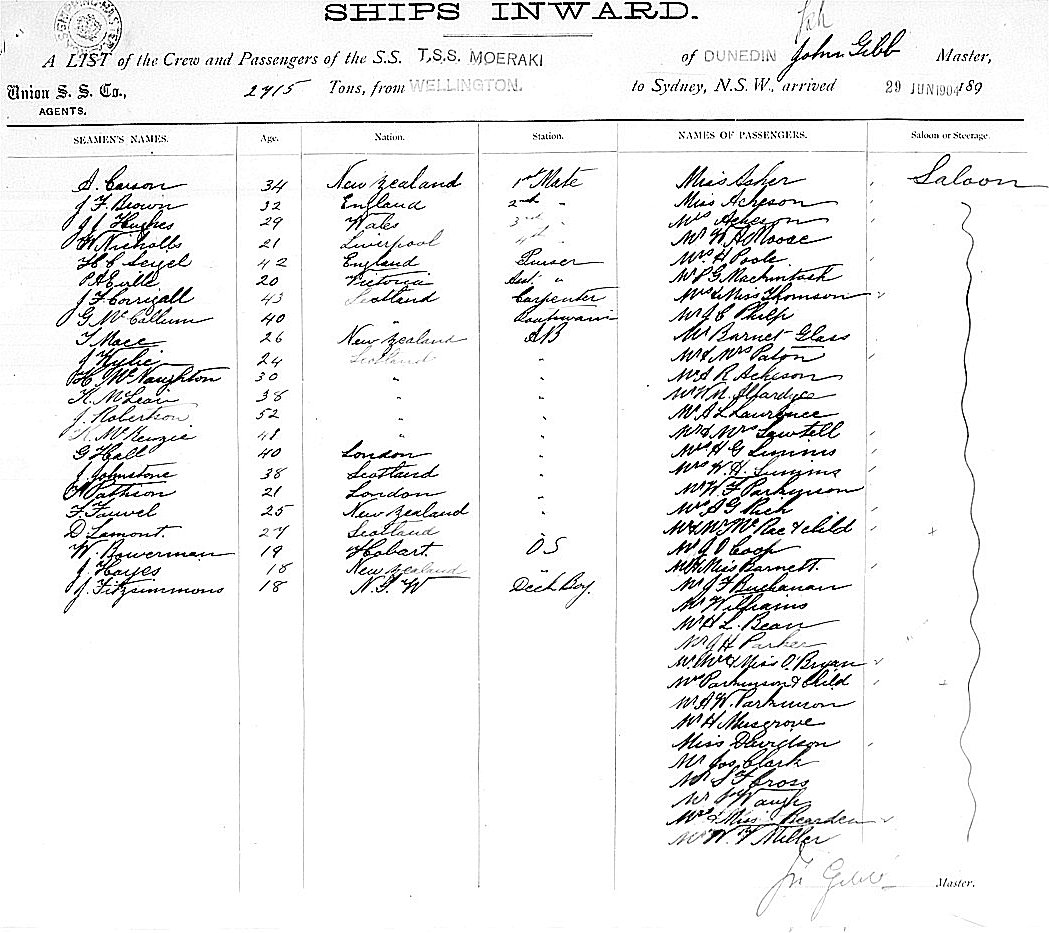 SHIPS INWARD.
A LIST of the Crew and Passengers of the S.S. T.S.S. MOERAKI of DUNEDIN John Gibb Master,
Union S. S. Co., AGENTS. 2715 Tons, from WELLINGTON. to Sydney, N.S.W., arrived 29 JUN 1904 189
SEAMEN'S NAMES. Age. Nation. Station. NAMES OF PASSENGERS. Saloon or Steerage.
A. Carson 34 New Zealand 1st Mate Miss Asher Saloon
J F. Brown 32 England 2nd " Miss Acheson
J J Hughes 29 Wales 3rd " Mrs Acheson
W Nicholls 21 Liverpool 4th " Mr W A Moose
H C Seigel 42 England Purser Mrs H Poole
20 Victoria Asst. " Mr P G Mackintosh
J F Corrigall 43 Scotland Carpenter Mrs & Miss Thomson
G McCallum 40 " Boatswain Mr J C Philp
T Mace 26 New Zealand AB Mr Barnet Glass
J Wylie 24 Scotland " Mr & Mrs Paton
H. McNaughton 30 " " Mr A R Acheson
K. McLean 38 " " Mr W M.
J. Robertson 52 " " Mr A L Laurence
K. McKenzie 48 " " Mr & Mrs Sawtell
G Hall 40 London " Mrs H G Simms
J. Johnstone 38 Scotland " Mrs W. H. Simms
Pattison 21 London " Mr W F Parkinson
F. Fauvel 25 New Zealand " Mrs A G Rich
D. Lamont. 27 Scotland McRae & child
W. Bowerman 19 Hobart. OS Mr J O Coop
J. Hayes 18 New Zealand " Miss Barnett.
J. Fitzsimmons 18 N.S.W Deck Boy. Mr J F Buchanan
Mr Williams
Mr H L. Bean
Mr J H Parker
Mr. Mrs & Miss O'Bryan
Mrs Parkinson & Child
Mr A W. Parkinson
Mr H Musgrove
Miss Davidson
Mr Jos. Clark
Mr S F Cross
Mr J Waugh
Mrs & Miss Rearden
Mr W. F Miller
Jn Gibb Master.